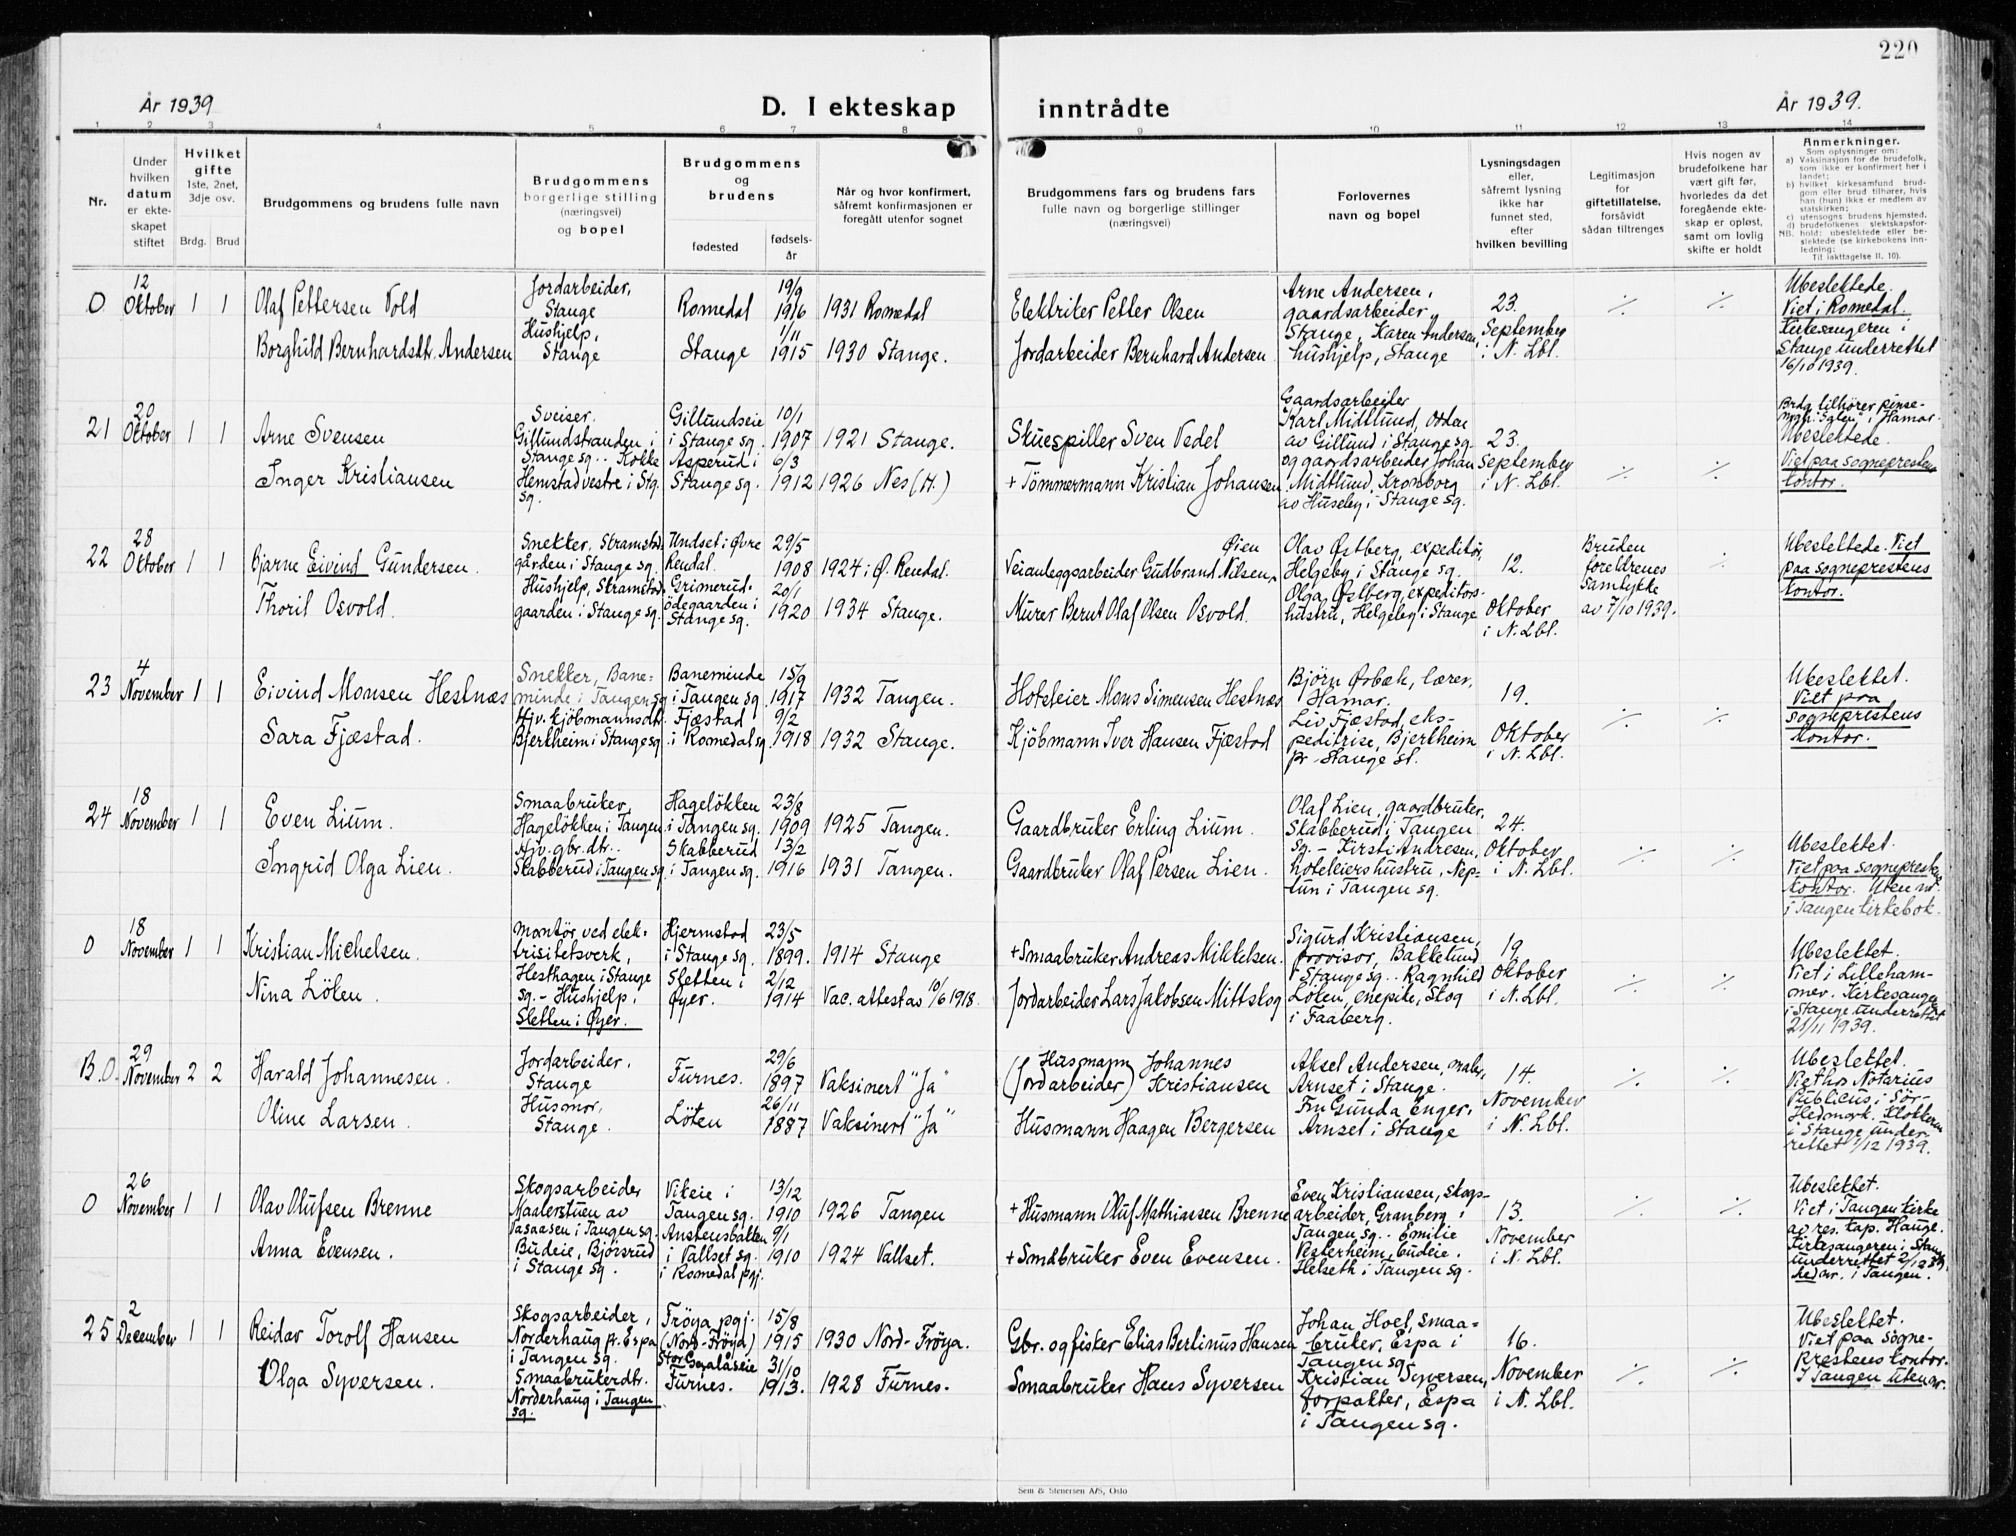 220
År 1939
D. I ekteskap
inntrådte
År 1939.
1 2 3 4 5 6 7 8 9 10 11 12 13 14
Nr.
Under
hvilken
datum
er ekte-
skapet
stiftet
Hvilket
gifte
1ste, 2net,
3dje osv.
Brdg. Brud
Brudgommens og brudens fulle navn
Brudgommens
borgerlige stilling
(næringsvei)
og bopel
Brudgommens
og
brudens
fødested
fødsels-
år
Når og hvor konfirmert,
såfremt konfirmasjonen er
foregått utenfor sognet
Brudgommens fars og brudens fars
fulle navn og borgerlige stillinger
(næringsvei)
Forlovernes
navn og bopel
Lysningsdagen
eller,
såfremt lysning
ikke har
funnet sted,
efter
hvilken bevilling
Legitimasjon
for
giftetillatelse,
forsåvidt
sådan tiltrenges
Hvis nogen av
brudefolkene har
vært gift før,
hvorledes da det
foregående ekte-
skap er opløst,
samt om lovlig
skifte er holdt
Anmerkninger.
Som oplysninger om:
a) Vaksinasjon for de brudefolk,
som ikke er konfirmert her i
landet;
b) hvilket kirkesamfund brud-
gom eller brud tilhører, hvis
han (hun) ikke er medlem av
statskirken;
c) utensogns brudens hjemsted.
d) brudefolkenes slektskapsfor-
NB. hold: ubeslektede eller be-
slektede (se kirkebokens inn-
ledning:
Til iakttagelse II, 10).
0
12
Oktober
1 1
Olaf Pettersen Vold
Borghild Bernhardsdtr. Andersen
Jordarbeider,
Stange
Hushjelp,
Stange
Romedal
Stange
19/9
1916
1/11
1915
1931 Romedal
1930 Stange.
Elektriker Petter Olsen
Jordarbeider Bernhard Andersen
Arne Andersen,
gaardsarbeider,
Stange, Karen Andersen,
hushjelp, Stange
23.
September
i N. Lbl.
⁒
⁒
Ubeslektede.
Viet i Romedal.
Kirkesangeren i
Stange underrettet
16/10 1939.
21
20
Oktober
1 1
Arne Svensen
Inger Kristiansen
Sveiser.
Gillundstranden i
Stange sg.. Kokke
Hemstad vestre i Stg.
sg.
Gillundseie
i Stange sg.
Asperud i
Stange sg.
10/1
1907
6/3
1912
1921 Stange.
1926 Nes (H.)
Skuespiller Sven Vedel
+ Tömmermann Kristian Johansen
Gaardsarbeider
Karl Midtlund, Oddan
av Gillund i Stange sg.
og gaardsarbeider Johan
Midtlund, Kronborg
av Huseby i Stange sg.
23.
September
i N. Lbl.
⁒
⁒
Brdg. tilhører pinse-
mgh. "Salen" i Hamar.
Ubeslektede.
Viet paa sogneprestens
kontor.
22
28
Oktober
1 1
Bjarne Eivind Gundersen.
Thoril Osvold.
Snekker, Stramstad-
gården i Stange sg.
Hushjelp, Stramstad-
gaarden i Stange sg.
Undset i Øvre
Rendal.
Grimerud-
ödegaarden i
Stange sg.
29/5
1908
20/1
1920
1924 i Ø. Rendal.
1934 Stange.
Øien
Veianleggsarbeider Gudbrand Nilsen,
Murer Bernt Olaf Olsen Osvold.
Olav Østberg, expeditör,
Helgeby i Stange sg.
Olga Østberg, expeditörs-
hustru, Helgeby i Stange
12.
Oktober
i N. Lbl.
Bruden
foreldrenes
samtykke
av 7/10 1939.
⁒
Ubeslektede. Viet
paa sogneprestens
kontor.
23
4
November
1 1
Eivind Monsen Hestnæs
Sara Fjæstad.
Snekker, Bane-
minde i Tangen sg.
Hjv. kjöbmannsdtr.
Bjerkheim i Stange sg.
Baneminde
i Tangen sg.
Fjæstad
i Romedal sg.
15/9
1917
9/2
1918
1932 Tangen.
1932 Stange.
Hoteleier Mons Simensen Hestnæs
Kjöbmann Iver Hansen Fjæstad
Björn Ørbæk, lærer,
Hamar.
Liv Fjæstad, eks-
peditrise, Bjerkheim
pr. Stange st.
19.
Oktober
i N. Lbl.
⁒
⁒
Ubeslektet.
Viet paa
sogneprestens
kontor.
24
18
November
1 1
Even Lium.
Ingrid Olga Lien.
Smaabruker,
Hagelökken i Tangen
Hjv. gbr. dtr..
Skabberud i Tangen sg.
Hagelökken
i Tangen sg.
Skabberud
i Tangen sg.
23/8
1909
13/2
1916
1925 Tangen.
1931 Tangen.
Gaardbruker Erling Lium.
Gaardbruker Olaf Persen Lien.
Olaf Lien, gaardbruker,
Skabberud i Tangen
sg. - Kirsti Andresen,
hoteleiershustru, Nep-
tun i Tangen sg.
24.
Oktober
i N. Lbl.
⁒
⁒
Ubeslektet.
Viet paa sogneprestens
kontor. Uten nr.
i Tangen kirkebok.
0
18
November
1 1
Kristian Michelsen.
Nina Löken.
montör ved elek-
trisitetsverk,
Hesthagen i Stange
sg. - Hushjelp,
Sletten i Øyer.
Hjermstad
i Stange sg.
Sletten i
Øyer.
23/5
1899.
2/12
1914
1914 Stange
Vac. attest av 10/6 1918.
+ Smaabruker Andreas Mikkelsen.
Jordarbeider Lars Jakobsen Mittskog
Sigurd Kristiansen,
provisor, Bakkelund
i Stange sg.. Ragnhild
Löken, enepike, Skog
i Faaberg.
19
Oktober
i N. Lbl.
⁒
⁒
Ubeslektet.
Viet i Lilleham-
mer. Kirkesangeren
i Stange underrettet
21/11 1939.
B.O.
29
November
2 2
Harald Johannesen.
Oline Larsen.
Jordarbeider,
Stange
Husmor,
Stange.
Furnes.
Löten
29/6
1897
26/11
1887
Vaksinert "Ja"
Vaksinert "Ja"
Husmann Johannes
(Jordarbeider) Kristiansen
Husmann Haagen Bergersen
Aksel Andersen, maler,
Arnset i Stange.
Fru Gunda Enger,
Arnset i Stange
14.
November
i N. Lbl.
⁒
⁒
Ubeslektet.
Viet hos Notarius
Publicus i Sör-
Hedmark. Klokkeren
i Stange under-
rettet 1/12 1939.
0
26
November
1 1
Olav Olufsen Brenne
Anna Evensen.
Skogsarbeider
Maalerstuen av
Vasaasen i Tangen sg.
Budeie, Bjösrud
i Stange sg.
Vikeie i
Tangen sg.
Anstensbakken
i Vallset sg.
i Romedal pgj.
13/12
1910
9/1
1910
1926 Tangen
1924 Vallset.
+ Husmann Oluf Mathiassen Brenne
+ Småbruker Even Evensen.
Even Kristiansen, skogs-
arbeider, Granberg i
Tangen sg.. Emilie
Vesterheim, budeie.
Helseth i Tangen sg.
13.
November
i N. Lbl.
⁒
⁒
Ubeslektet.
Viet i Tangen kirke
av res. kap. Hauge.
Kirkesangeren i Stange
underrettet 2/12 39,
med nr. i Tangen.
25
2
December
1 1
Reidar Torolf Hansen
Olga Syversen.
Skogsarbeider,
Norderhaug pr. Espa
i Tangen sg.
Smaabrukerdtr.
Norderhaug i Tangen
sg.
Fröya pgj.
(Nord-Fröya)
Furnes.
15/8
1915
31/10
1913.
1930 Nord-Fröya.
1928 Furnes.
Gbr. og fisker Elias Berlinus Hansen
Smaabruker Hans Syversen
Johan Hoel, smaa-
bruker, Espa i
Tangen sg.
Kristian Syversen,
forpakter, Espa
i Tangen sg.
16.
November
i N. Lbl.
⁒
⁒
Ubeslektet.
Viet paa sogne-
prestens kontor.
I Tangen uten nr.
Sem & Stenersen A/S, Oslo